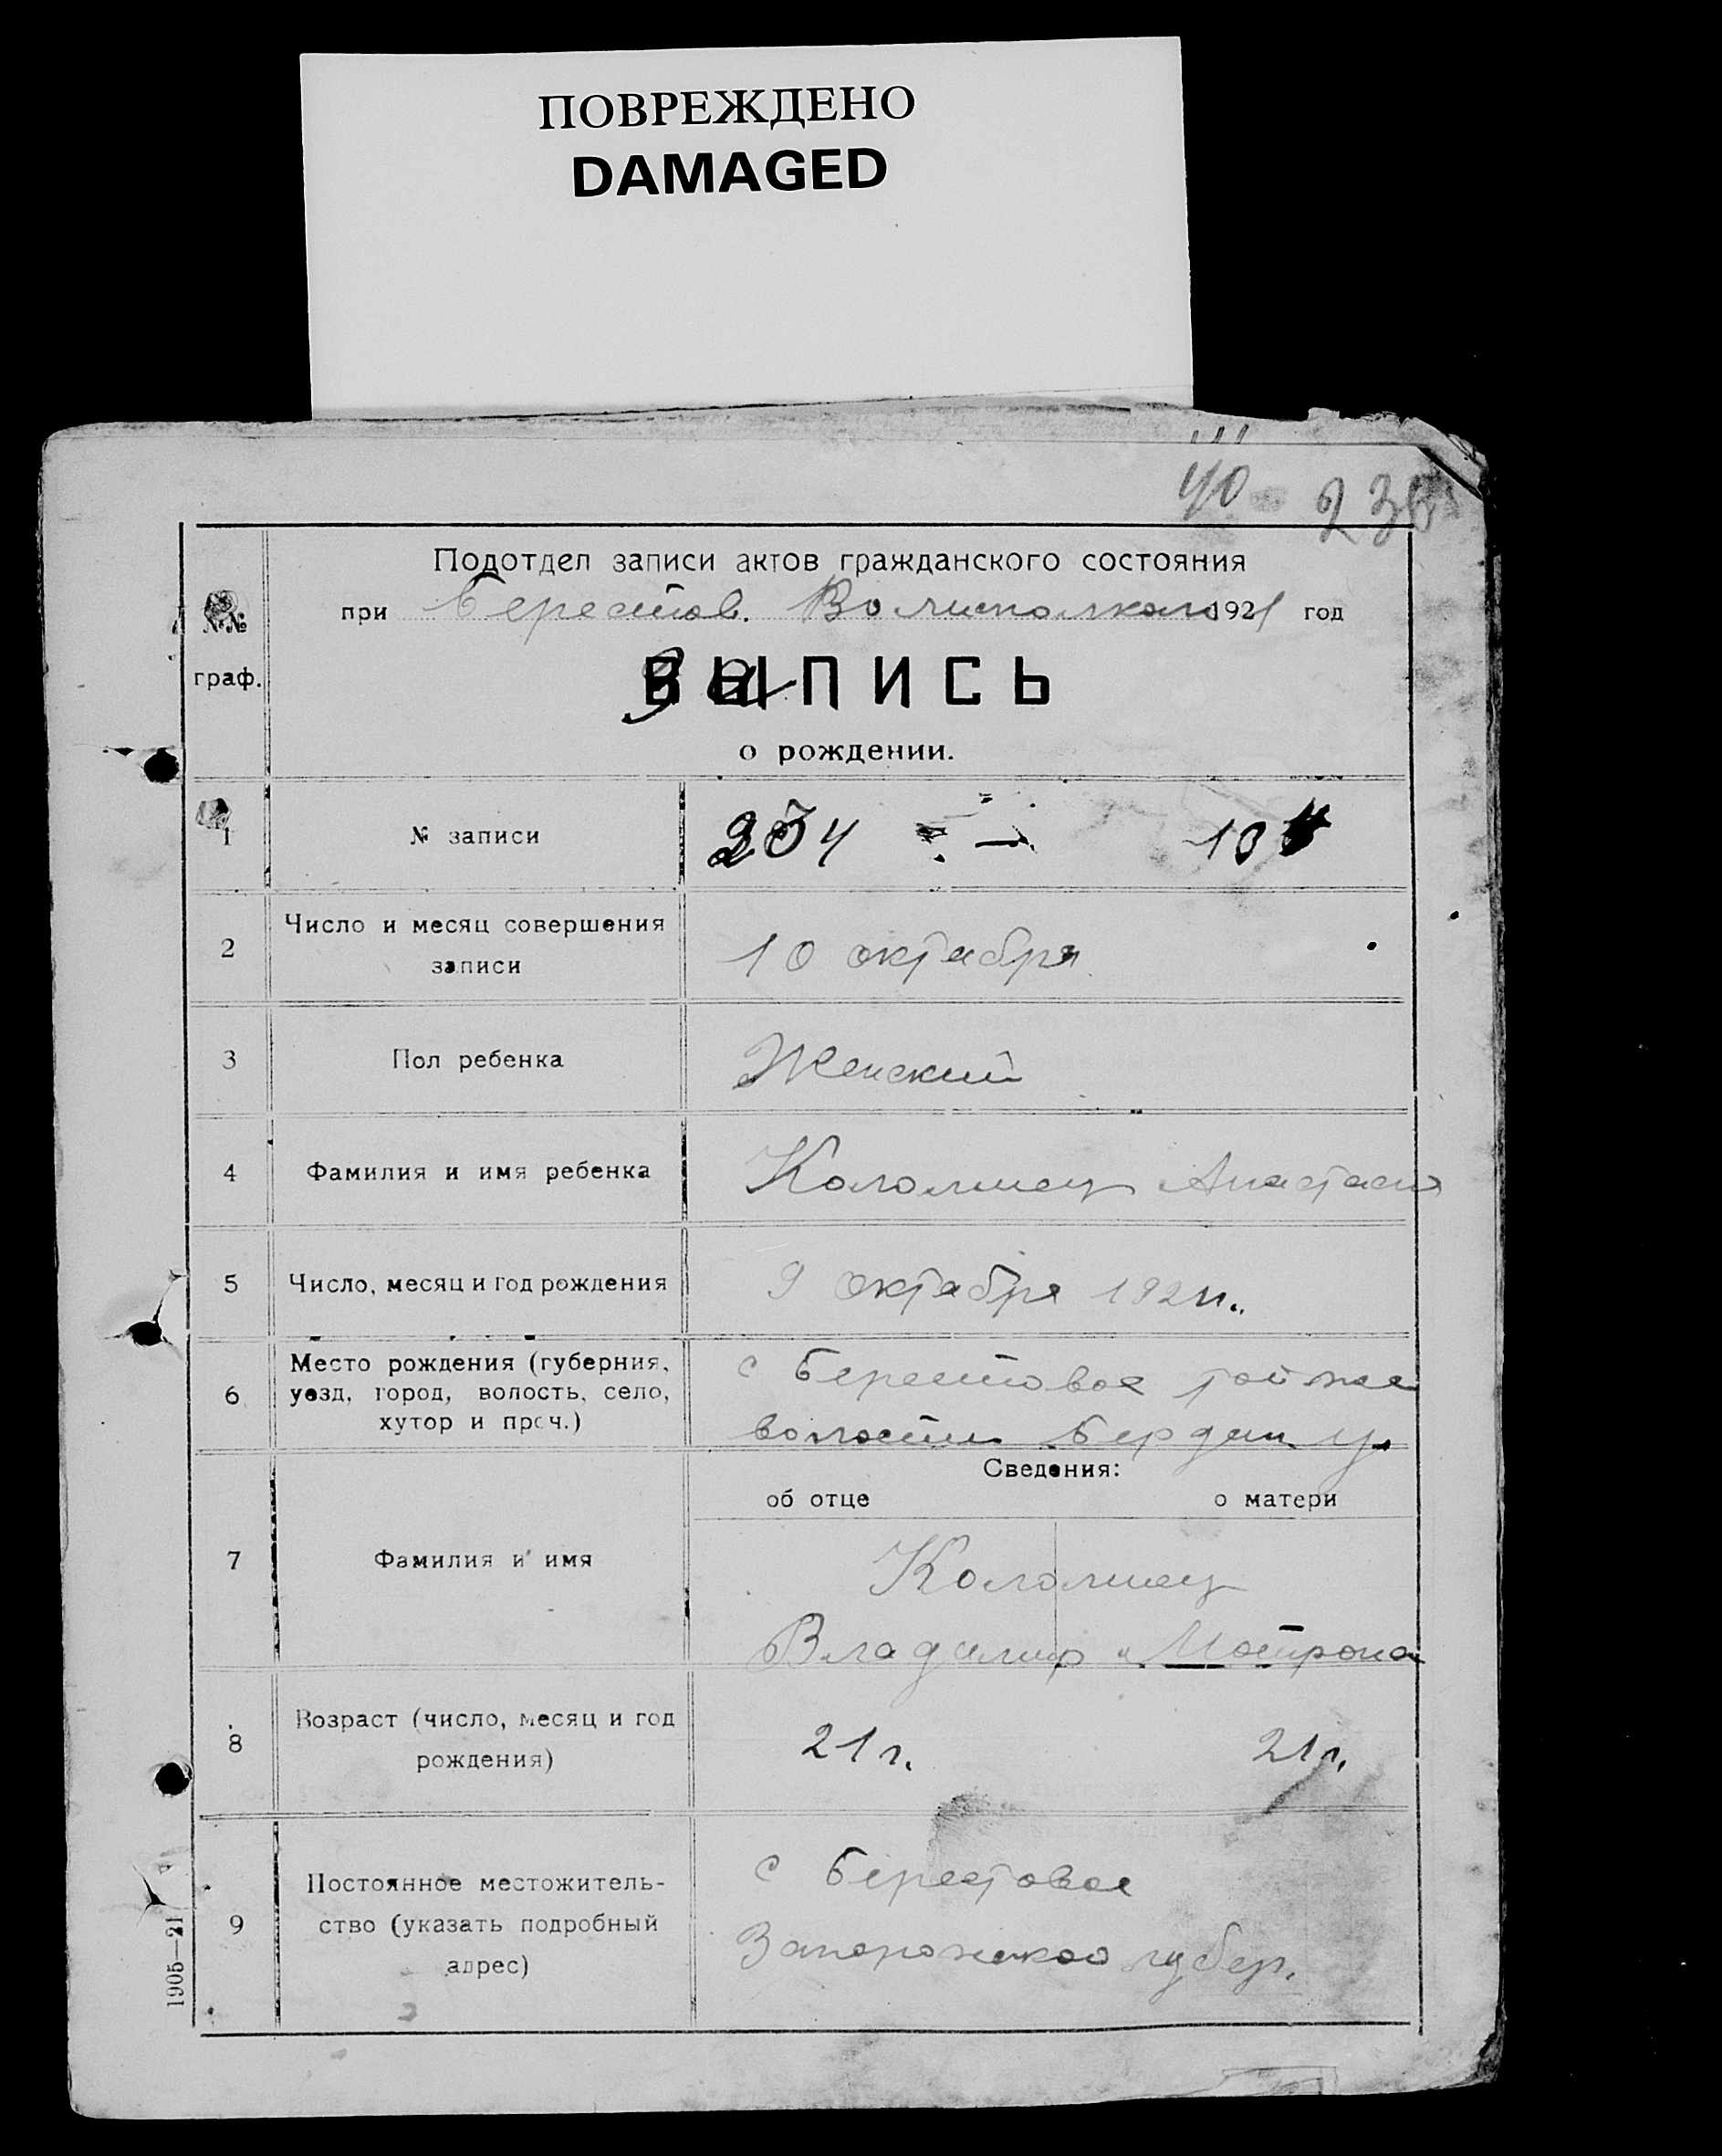 ПОВРЕЖДЕНО
DAMAGED
40 236
Подотдел записи актов гражданского состояния
№№ при Берестов. Волисполкоме 1921 год
граф.
За ВЫПИСЬ
о рождении.
1 № записи 234 —
2 Число и месяц совершения
записи 10 октября
3 Пол ребенка Женский
4 Фамилия и имя ребенка Коломиец Анастасия
5 Число, месяц и год рождения 9 октября 1921 г.
6 Место рождения (губерния,
уезд, город, волость, село,
хутор и проч.)
с Берестовое той же
волости Бердян у.
Сведения:
об отце о матери
7 Фамилия и имя
Коломиец
Владимир и Мотрона
8 Возраст (число, месяц и год
рождения)
21 г. 21 г.
9 Постоянное местожитель-
ство (указать подробный
адрес)
с Берестовое
Запорожской губер.
1905—21